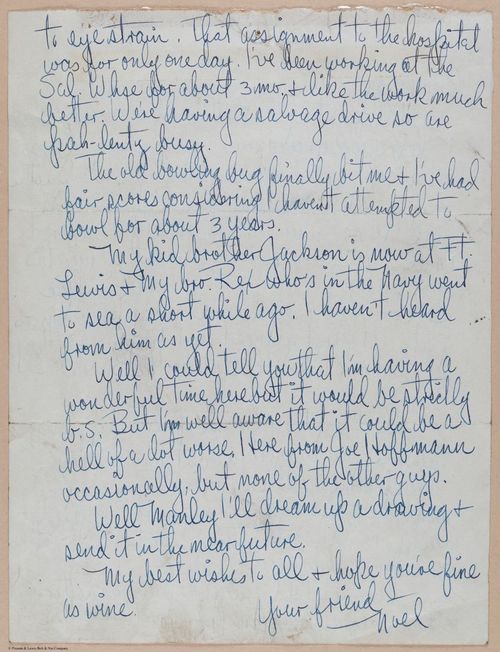 to eye strain. That assignment to the hospital
was for only one day. I've been working at the
Sal. Whse for about 3 mo. & like the work much
better. We're having a salvage drive so are
pah-lenty busy.
The old bowling bug finally bit me & I've had
fair scores considering I haven't attempted to
bowl for about 3 years.
My kid brother Jackson is now at Ft.
Lewis & my bro. Rex who's in the Navy went
to sea a short while ago. I haven't heard
from him as yet.
Well I could tell you that I'm having a
wonderful time here but it would be strictly
b.s. But I'm well aware that it could be a
hell of a lot worse. I Here from Joe Hoffmann
occasionally, but none of the other guys.
Well Manley I'll dream up a drawing &
send it in the near future.
My best wishes to all & hope you're fine
as wine.
Your friend
Noel
© Pioneer & Lewis Bolt & Nut Company